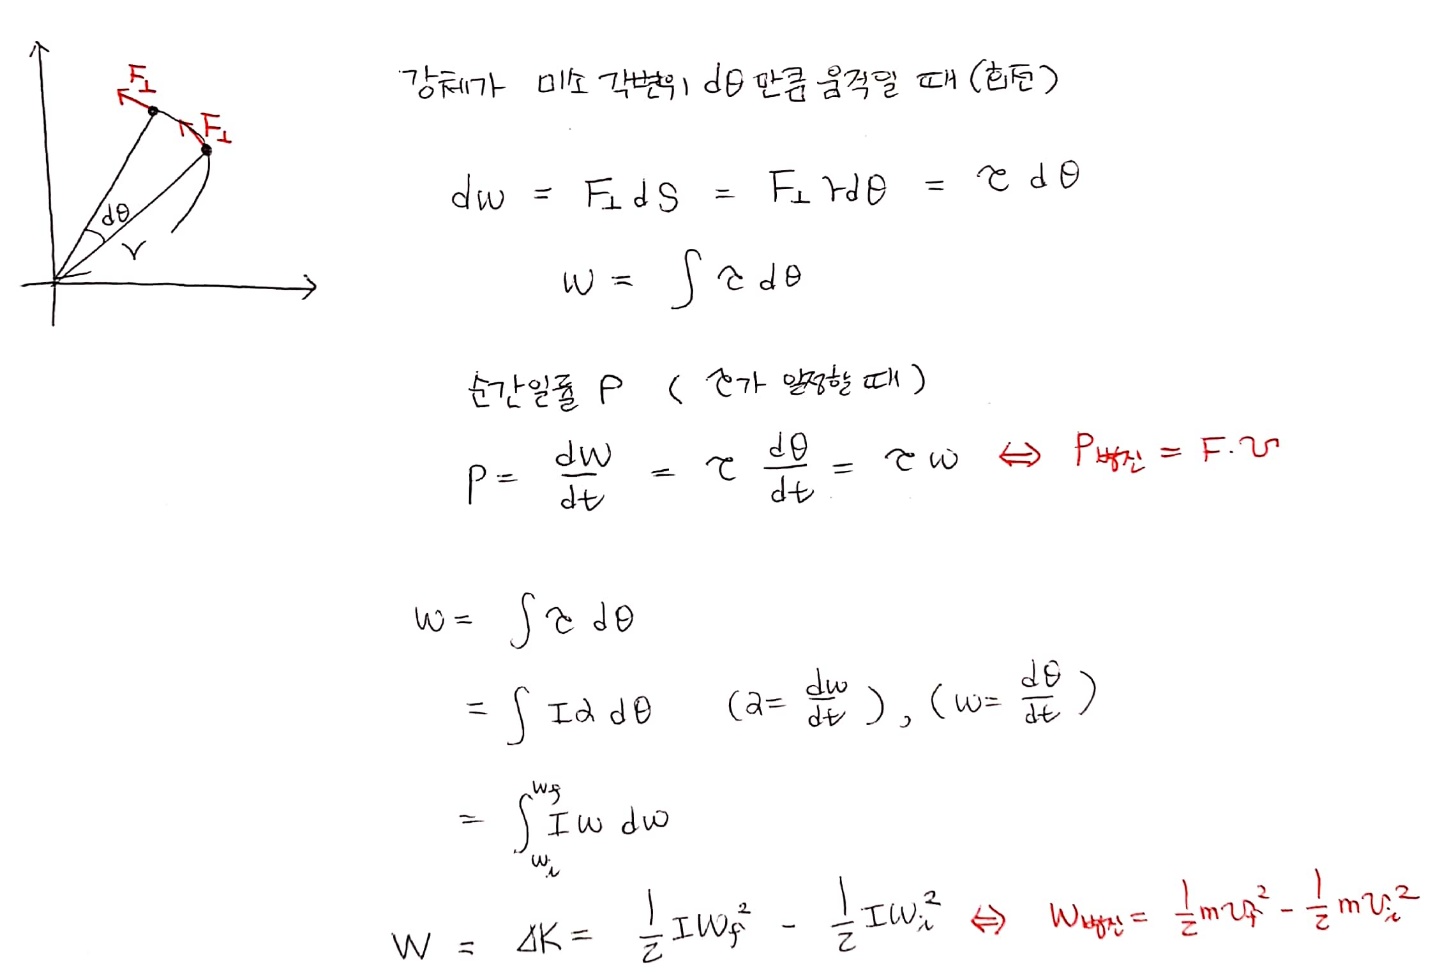 F⊥
F⊥
dθ
r
강체가 미소 각변위 dθ 만큼 움직일 때 (회전)
dw = F⊥ds = F⊥rdθ = τdθ
w = ∫τdθ
순간일률 P (τ가 일정할 때)
P = dW/dt = τ dθ/dt = τω ⇔ P병진 = F·v
W = ∫τdθ
= ∫Iα dθ (α = dω/dt), (ω = dθ/dt)
= ∫_{ωi}^{ωf} Iω dω
W = ΔK = 1/2 Iωf² - 1/2 Iωi² ⇔ W병진 = 1/2 mvf² - 1/2 mvi²